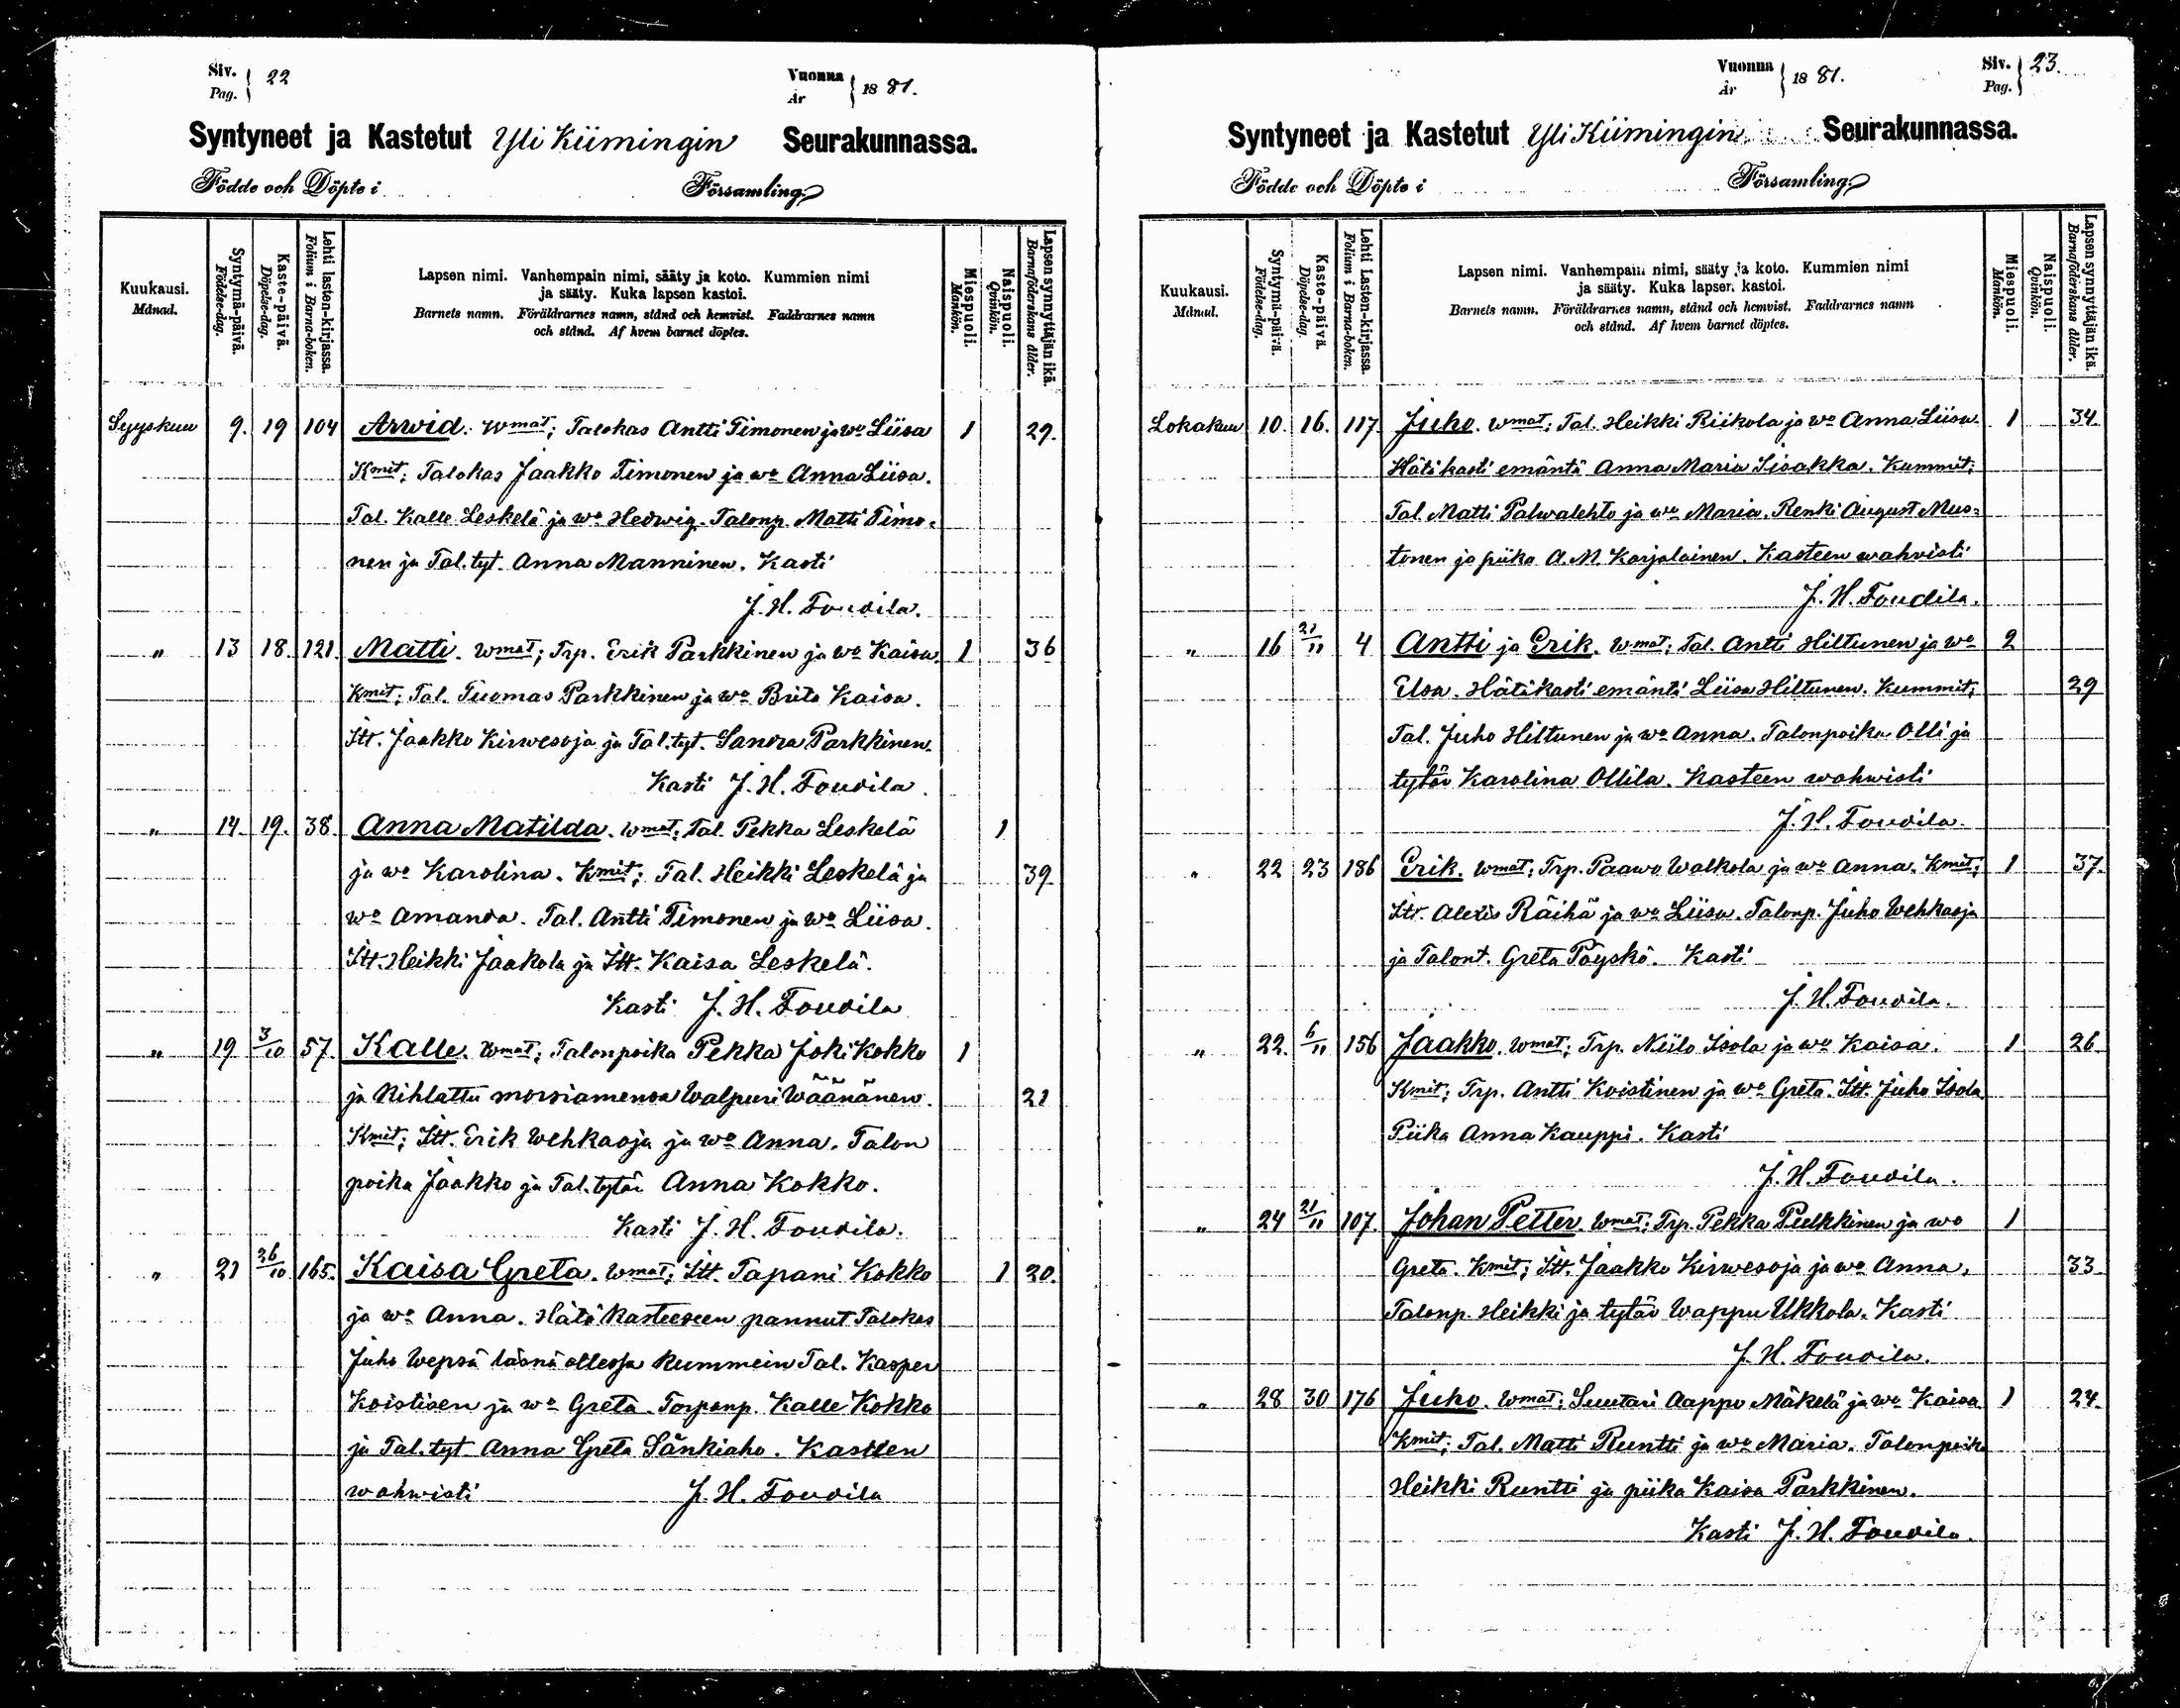 Siv. 22
Pag.
Vuonna 1881.
År
Syntyneet ja Kastetut Yli Kiimingin Seurakunnassa.
Födde och Döpte i Församling.
Kuukausi.
Månad.
Syntymä-päivä.
Födelse-dag.
Kaste-päivä.
Döpelse-dag.
Lehti lasten-kirjassa.
Folium i Barna-boken.
Lapsen nimi. Vanhempain nimi, sääty ja koto. Kummien nimi
ja sääty. Kuka lapsen kastoi.
Barnets namn. Föräldrarnes namn, stånd och hemvist. Faddrarnes namn
och stånd. Af hvem barnet döptes.
Miespuoli.
Mankön.
Naispuoli.
Qvinkön.
Lapsen synnyttäjän ikä.
Barnaföderskans ålder.
Syyskuu 9. 19 104 Arwid. Wmat; Talokas Antti Timonen ja wo Liisa 1 29.
Kmit; Talokas Jaakko Timonen ja wo Anna Liisa.
Tal. Kalle Leskelä ja wo Hedwig. Talonp. Matti Timo-
nen ja Tal. tyt. Anna Manninen. Kasti
J. H. Toudila.
" 13 18. 121. Matti. Wmat; Trp. Erik Parkkinen ja wo Kaisa. 1 36
Kmit; Tal. Tuomas Parkkinen ja wo Brita Kaisa.
Itt. Jaakko Kirwesoja ja Tal. tyt. Sandra Parkkinen.
Kasti J. H. Toudila.
" 14. 19. 38. Anna Matilda. Wmat; Tal. Pekka Leskelä 1
ja wo Karolina. Kmit; Tal. Heikki Leskelä ja 39.
wo Amanda. Tal. Antti Timonen ja wo Liisa.
Itt. Heikki Jaakola ja Itt. Kaisa Leskelä.
Kasti J. H. Toudila
" 19 3/10 57. Kalle. Wmat; Talonpoika Pekka Joki Kokko 1
ja Kihlattu morsiamensa Walpuri Wäänänen. 21
Kmit; Itt. Erik Wehkaoja ja wo Anna. Talon
poika Jaakko ja Tal. tytär Anna Kokko.
Kasti J. H. Toudila.
" 21 26/10 165. Kaisa Greta. Wmat; Itt. Tapani Kokko 1 20.
ja wo Anna. Hätä Kasteeseen pannut Talokas
Juho Wepsä läsnä ollessa Kummein Tal. Kasper
Koistisen ja wo Greta. Torpanp. Kalle Kokko
ja Tal. tyt. Anna Greta Sänkiaho. Kasteen
wahwisti J. H. Toudila
Vuonna 1881.
År
Siv. 23.
Pag.
Syntyneet ja Kastetut Yli Kiimingin Seurakunnassa.
Födde och Döpte i Församling.
Kuukausi.
Månad.
Syntymä-päivä.
Födelse-dag.
Kaste-päivä.
Döpelse-dag.
Lehti Lasten-kirjassa.
Folium i Barna-boken.
Lapsen nimi. Vanhempain nimi, sääty ja koto. Kummien nimi
ja sääty. Kuka lapsen kastoi.
Barnets namn. Föräldrarnes namn, stånd och hemvist. Faddrarnes namn
och stånd. Af hvem barnet döptes.
Miespuoli.
Mankön.
Naispuoli.
Qvinkön.
Lapsen synnyttäjän ikä.
Barnaföderskans ålder.
Lokakuu 10. 16. 117. Juho. Wmat; Tal. Heikki Riikola ja wo Anna Liisa. 1 34.
Hätikasti emäntä Anna Maria Sisakka. Kummit;
Tal. Matti Palwalehto ja wo Maria. Renki August Mus-
tonen ja piika A. M. Karjalainen. Kasteen wahvisti
J. H. Toudila.
" 16 21/11 4 Antti ja Erik. Wmat; Tal. Antti Hiltunen ja wo 2
Elsa. Hätikasti emänti Liisa Hiltunen. Kummit; 29
Tal. Juho Hiltunen ja wo Anna. Talonpoika Olli ja
tytär Karolina Ollila. Kasteen wahwisti
J. H. Toudila.
" 22 23 186 Erik. Wmat; Trp. Paawo Walkola ja wo Anna. Kmit; 1 37.
Itr. Alexis Räihä ja wo Liisa. Talonp. Juho Wehkaoja
ja Talont. Greta Pöyskö. Kasti
J. H. Toudila.
" 22. 6/11 156 Jaakko. Wmat; Trp. Niilo Isola ja wo Kaisa. 1 26
Kmit; Trp. Antti Koistinen ja wo Greta. Itt. Juho Isola
Piika Anna Kauppi. Kasti
J. H. Toudila.
" 24 21/11 107. Johan Petter. Wmat; Trp. Pekka Pulkkinen ja wo 1
Greta. Kmit; Itt. Jaakko Kirwesoja ja wo Anna. 33
Talonp. Heikki ja tytär Wappu Ukkola. Kasti
J. H. Toudila.
" 28 30 176 Juho. Wmat; Suutari Aappo Mäkelä ja wo Kaisa 1 24.
Kmit; Tal. Matti Runtti ja wo Maria. Talonpoika
Heikki Runtti ja piika Kaisa Parkkinen.
Kasti J. H. Toudila.